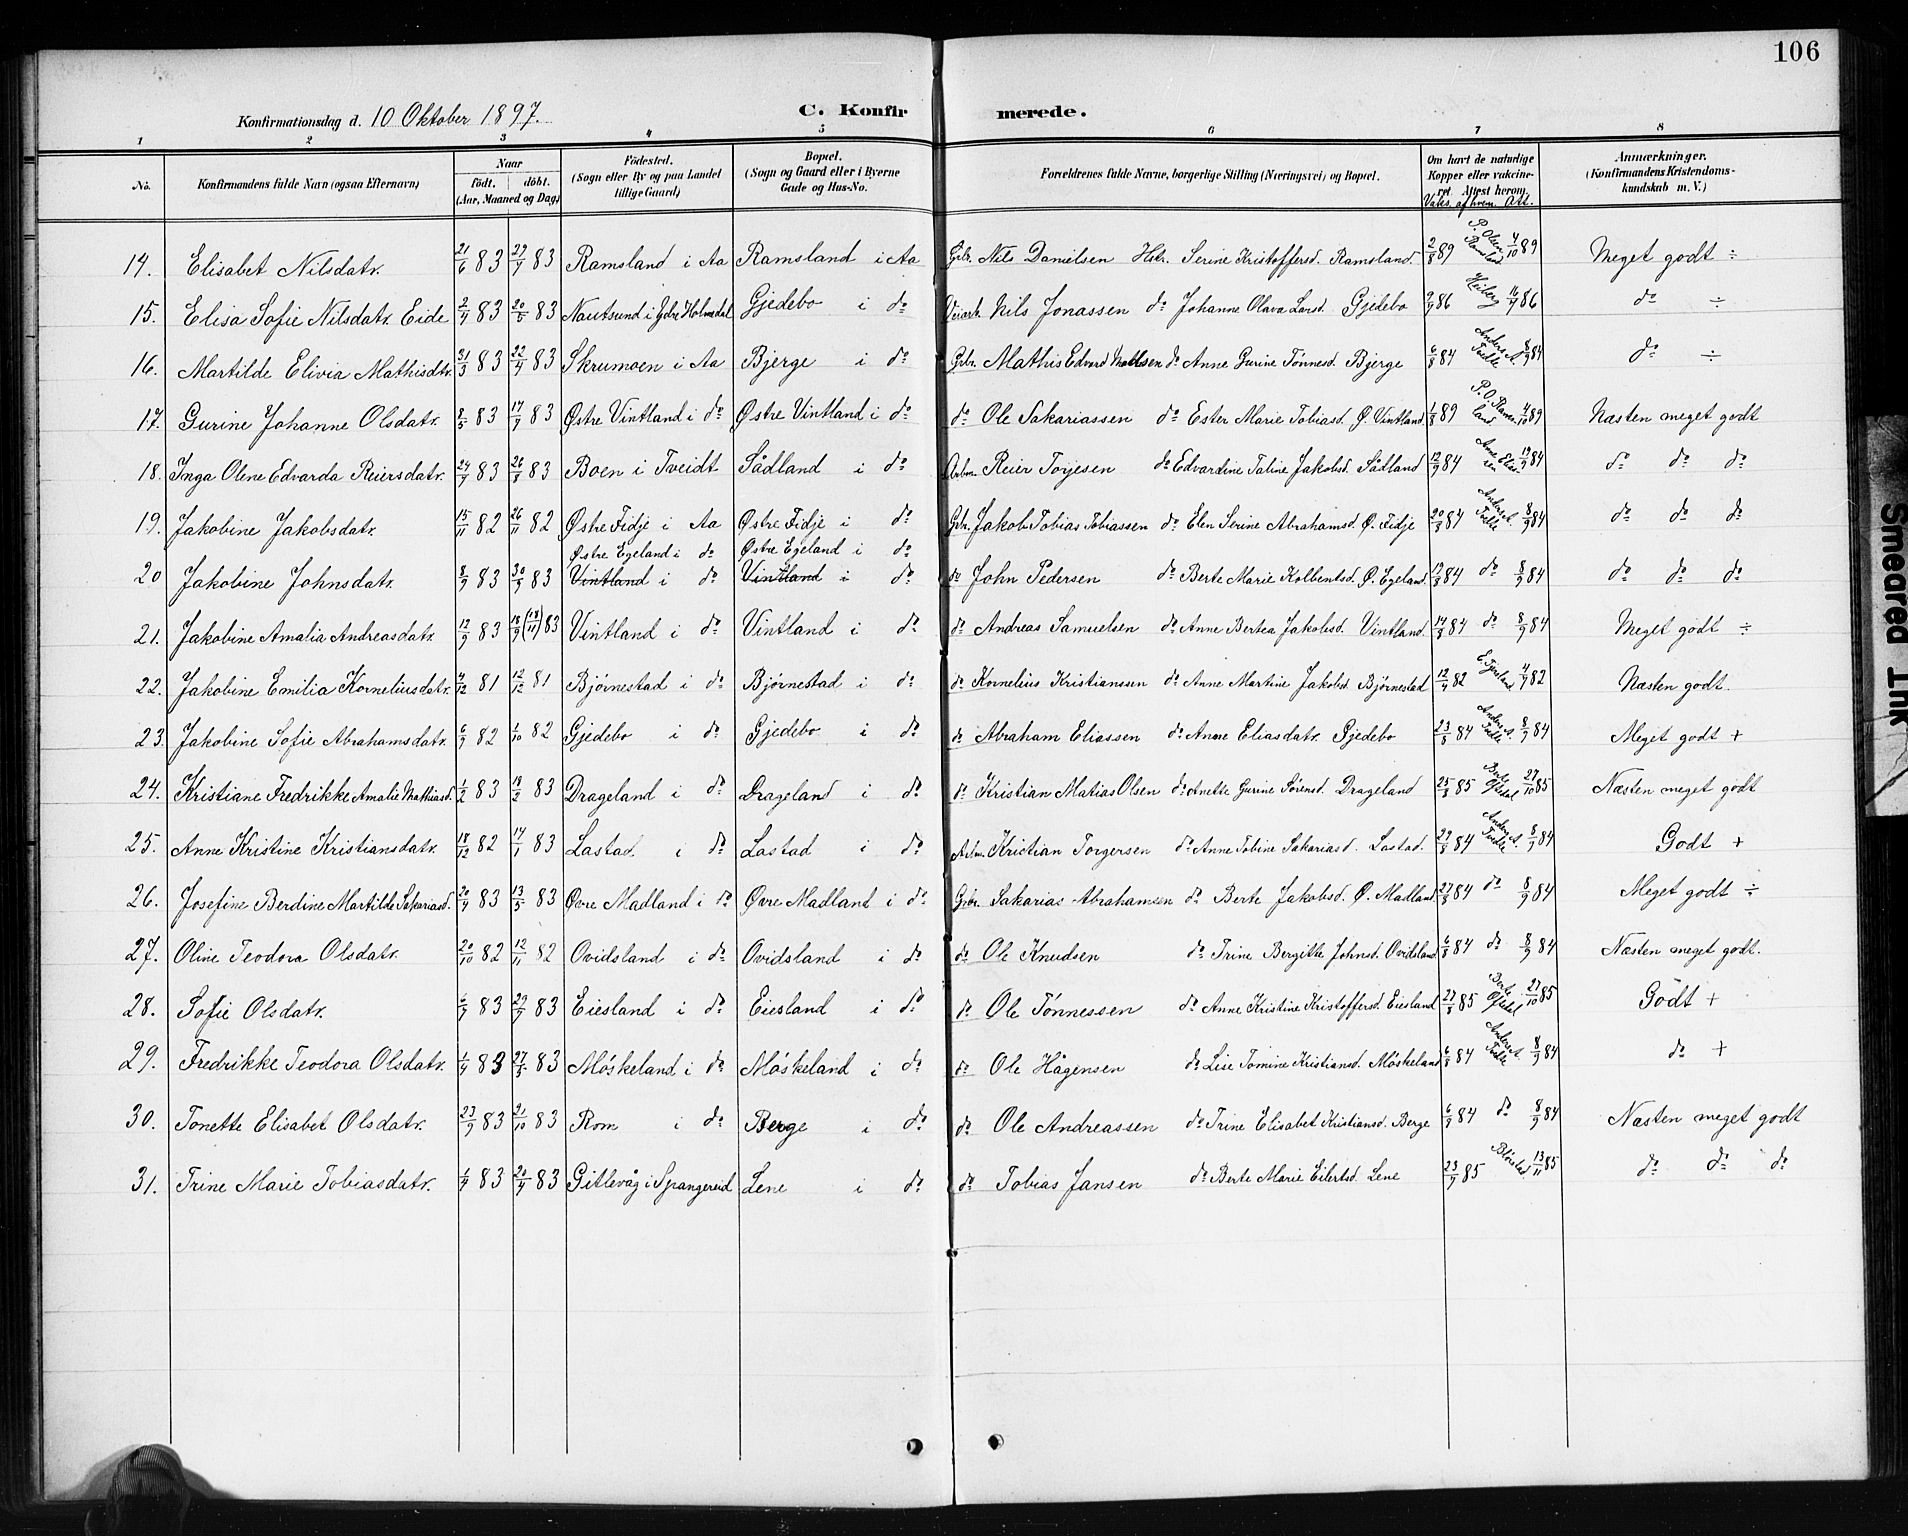 106
Konfirmationsdag d. 10 Oktober 1897. C. Konfirmerede.
1 2 3 4 5 6 7 8
No. Konfirmandens fulde Navn (ogsaa Efternavn) Naar født, døbt. (Aar, Maaned og Dag) Fødested. (Sogn eller By og paa Landet tillige Gaard) Bopæl. (Sogn og Gaard eller i Byerne Gade og Hus-No. Forældrenes fulde Navne, borgerlige Stilling (Næringsvei) og Bopæl. Om havt de naturlige Kopper eller vakcineret. Attest herom. Vaks. af hvem. Att. Anmærkninger. (Konfirmandens Kristendomskundskab m. V.)
14. Elisabet Nilsdatr. 21/6 83 29/7 83 Ramsland i Aa Ramsland i Aa Gbr. Nils Danielsen Hstr. Serine Kristoffersd. Ramsland. 2/8 89 P. Olsen Ramsland 4/10 89 Meget godt ÷
15. Elisa Sofie Nilsdatr. Eide 2/4 83 20/5 83 Nautsund i Ydre Holmedal Gjedebo i do Veiarb. Nils Jonassen do Johanne Olava Larsd. Gjedebo 9/9 86 Heiberg 16/9 86 do ÷
16. Martilde Elivia Mathisdtr. 31/3 83 22/4 83 Skrumoen i Aa Bjerge i do Gbr. Mathis Edvard do Anne Gurine Tønnesd. Bjerge 6/8 84 Anders A. Tredte 8/9 84 do ÷
17. Gurine Johanne Olsdatr. 8/5 83 17/9 83 Østre Vintland i do Østre Vintland i do do Ole Sakariassen do Ester Marie Tobiasd. Ø. Vintland 1/8 89 P. O. Ramsland 4/10 89 Næsten meget godt
18. Inga Olene Edvarda Reiersdatr. 24/7 83 26/8 83 Boen i Tveidt Sådland i do Arbm. Reier Torjesen do Edvardine Taline Jakobsd. Sådland 12/9 84 19/9 84 do do do
19. Jakobine Jakobsdatr. 15/11 82 26/11 82 Østre Fidje i Aa Østre Fidje i do Gbr. Jakob Tobias Tobiassen do Elen Serine Abrahamsd. Ø. Fidje 20/8 84 Anders A. Tredte 8/9 84 do do do
Østre Egeland i do Østre Egeland i do
20 Jakobine Johnsdatr. 8/9 83 30/9 83 Vintland i do Vintland i do do John Pedersen do Berte Marie Kolbentsd. Ø. Egeland. 19/8 84 do 8/9 84 do do do
21. Jakobine Amalia Andreasdatr. 12/9 83 18/9 (18/11) 83 Vintland i do Vintland i do do Andreas Samuelsen do Anne Bertea Jakobsd. Vintland. 14/8 84 do 8/9 84 Meget godt ÷
22. Jakobine Emilia Korneliusdatr. 4/12 81 12/12 81 Bjørnestad i do Bjørnestad i do do Kornelius Kristianssen do Anne Martine Jakobsd. Bjørnestad 12/9 82 4/9 82 Næsten godt.
23. Jakobine Sofie Abrahamsdatr. 6/9 82 1/10 82 Gjedebo i do Gjedebo i do do Abraham Eliassen do Anne Eliasdatr. Gjedebo 23/8 84 Anders A. Tredte 8/9 84 Meget godt +
24. Kristiane Fredrikke Amalie Mathiasd. 1/2 83 18/2 83 Drageland i do Drageland i do do Kristian Matias Olsen do Anette Gurine Sørensd. Drageland 25/8 85 27/10 85 Næsten meget godt
25. Anne Kristine Kristiansdatr. 18/12 82 14/1 83 Lastad. i do Lastad i do Arbm. Kristian Torgersen do Anne Tobine Sakariasd. Lastad. 29/8 84 Anders A. Tredte 8/9 84 Godt +
26. Josefine Berdine Martilde Sakariasd. 20/4 83 13/5 83 Øvre Madland i do Øvre Madland i do Gbr. Sakarias Abrahamsen do Berte Jakobsd. Ø. Madland. 27/8 84 do 8/9 84 Meget godt ÷
27. Oline Teodora Olsdatr. 20/10 82 12/11 82 Ovidsland i do Ovidsland i do do Ole Knudsen do Trine Bergitte Johnsd. Ovidsland 6/8 84 do 8/9 84 Næsten meget godt.
28. Sofie Olsdatr. 6/7 83 29/7 83 Eiesland i do Eiesland i do do Ole Tønnessen do Anne Kristine Kristoffersd. Eiesland 27/8 85 27/10 85 Godt +
29. Fredrikke Teodora Olsdatr. 1/4 83 27/5 83 Møskeland i do Møskeland i do do Ole Hågensen do Lise Tomine Kristiansd. Møskeland 6/8 84 Anders A. Tredte 8/9 84 do +
30. Tonette Elisabet Olsdatr. 23/9 83 21/10 83 Rom i do Berge i do do Ole Andreassen do Trine Elisabet Kristiansd. Berge 6/9 84 do 8/9 84 Næsten meget godt
31. Trine Marie Tobiasdatr. 1/4 83 20/4 83 Gitlevåg i Spangereid Lene i do do Tobias Jansen do Berte Marie Eilertsd. Lene 23/9 85 13/11 85 do do do
Smeared Ink